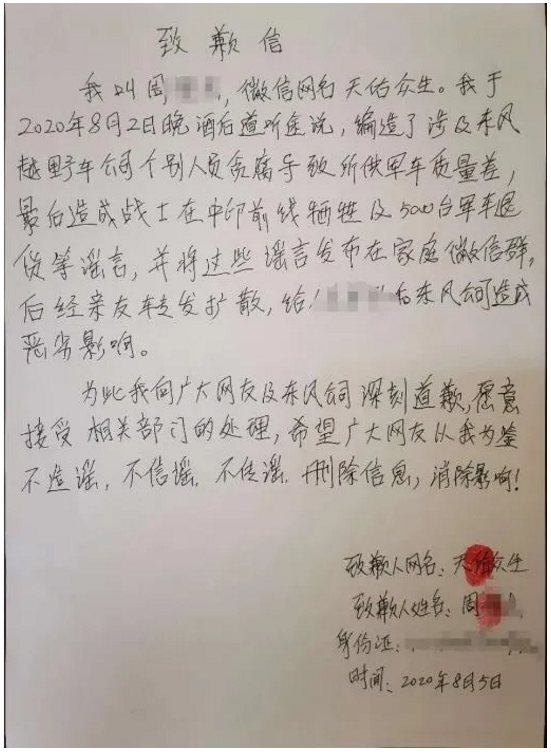 致歉信
我叫周，微信网名天佑众生。我于
2020年8月2日晚酒后道听途说，编造了涉及东风
越野车公司个别人员贪腐导致所供军车质量差，
最后造成战士在中印前线牺牲及5000台军车退
货等谣言，并将这些谣言发布在家庭微信群，
后经亲友转发扩散，给 和东风公司造成
恶劣影响。
为此我向广大网友及东风公司深刻道歉，愿意
接受相关部门的处理，希望广大网友从我为鉴
不造谣，不信谣，不传谣。删除信息，消除影响！
致歉人网名：天佑众生
致歉人姓名：周
身份证：
时间：2020年8月5日